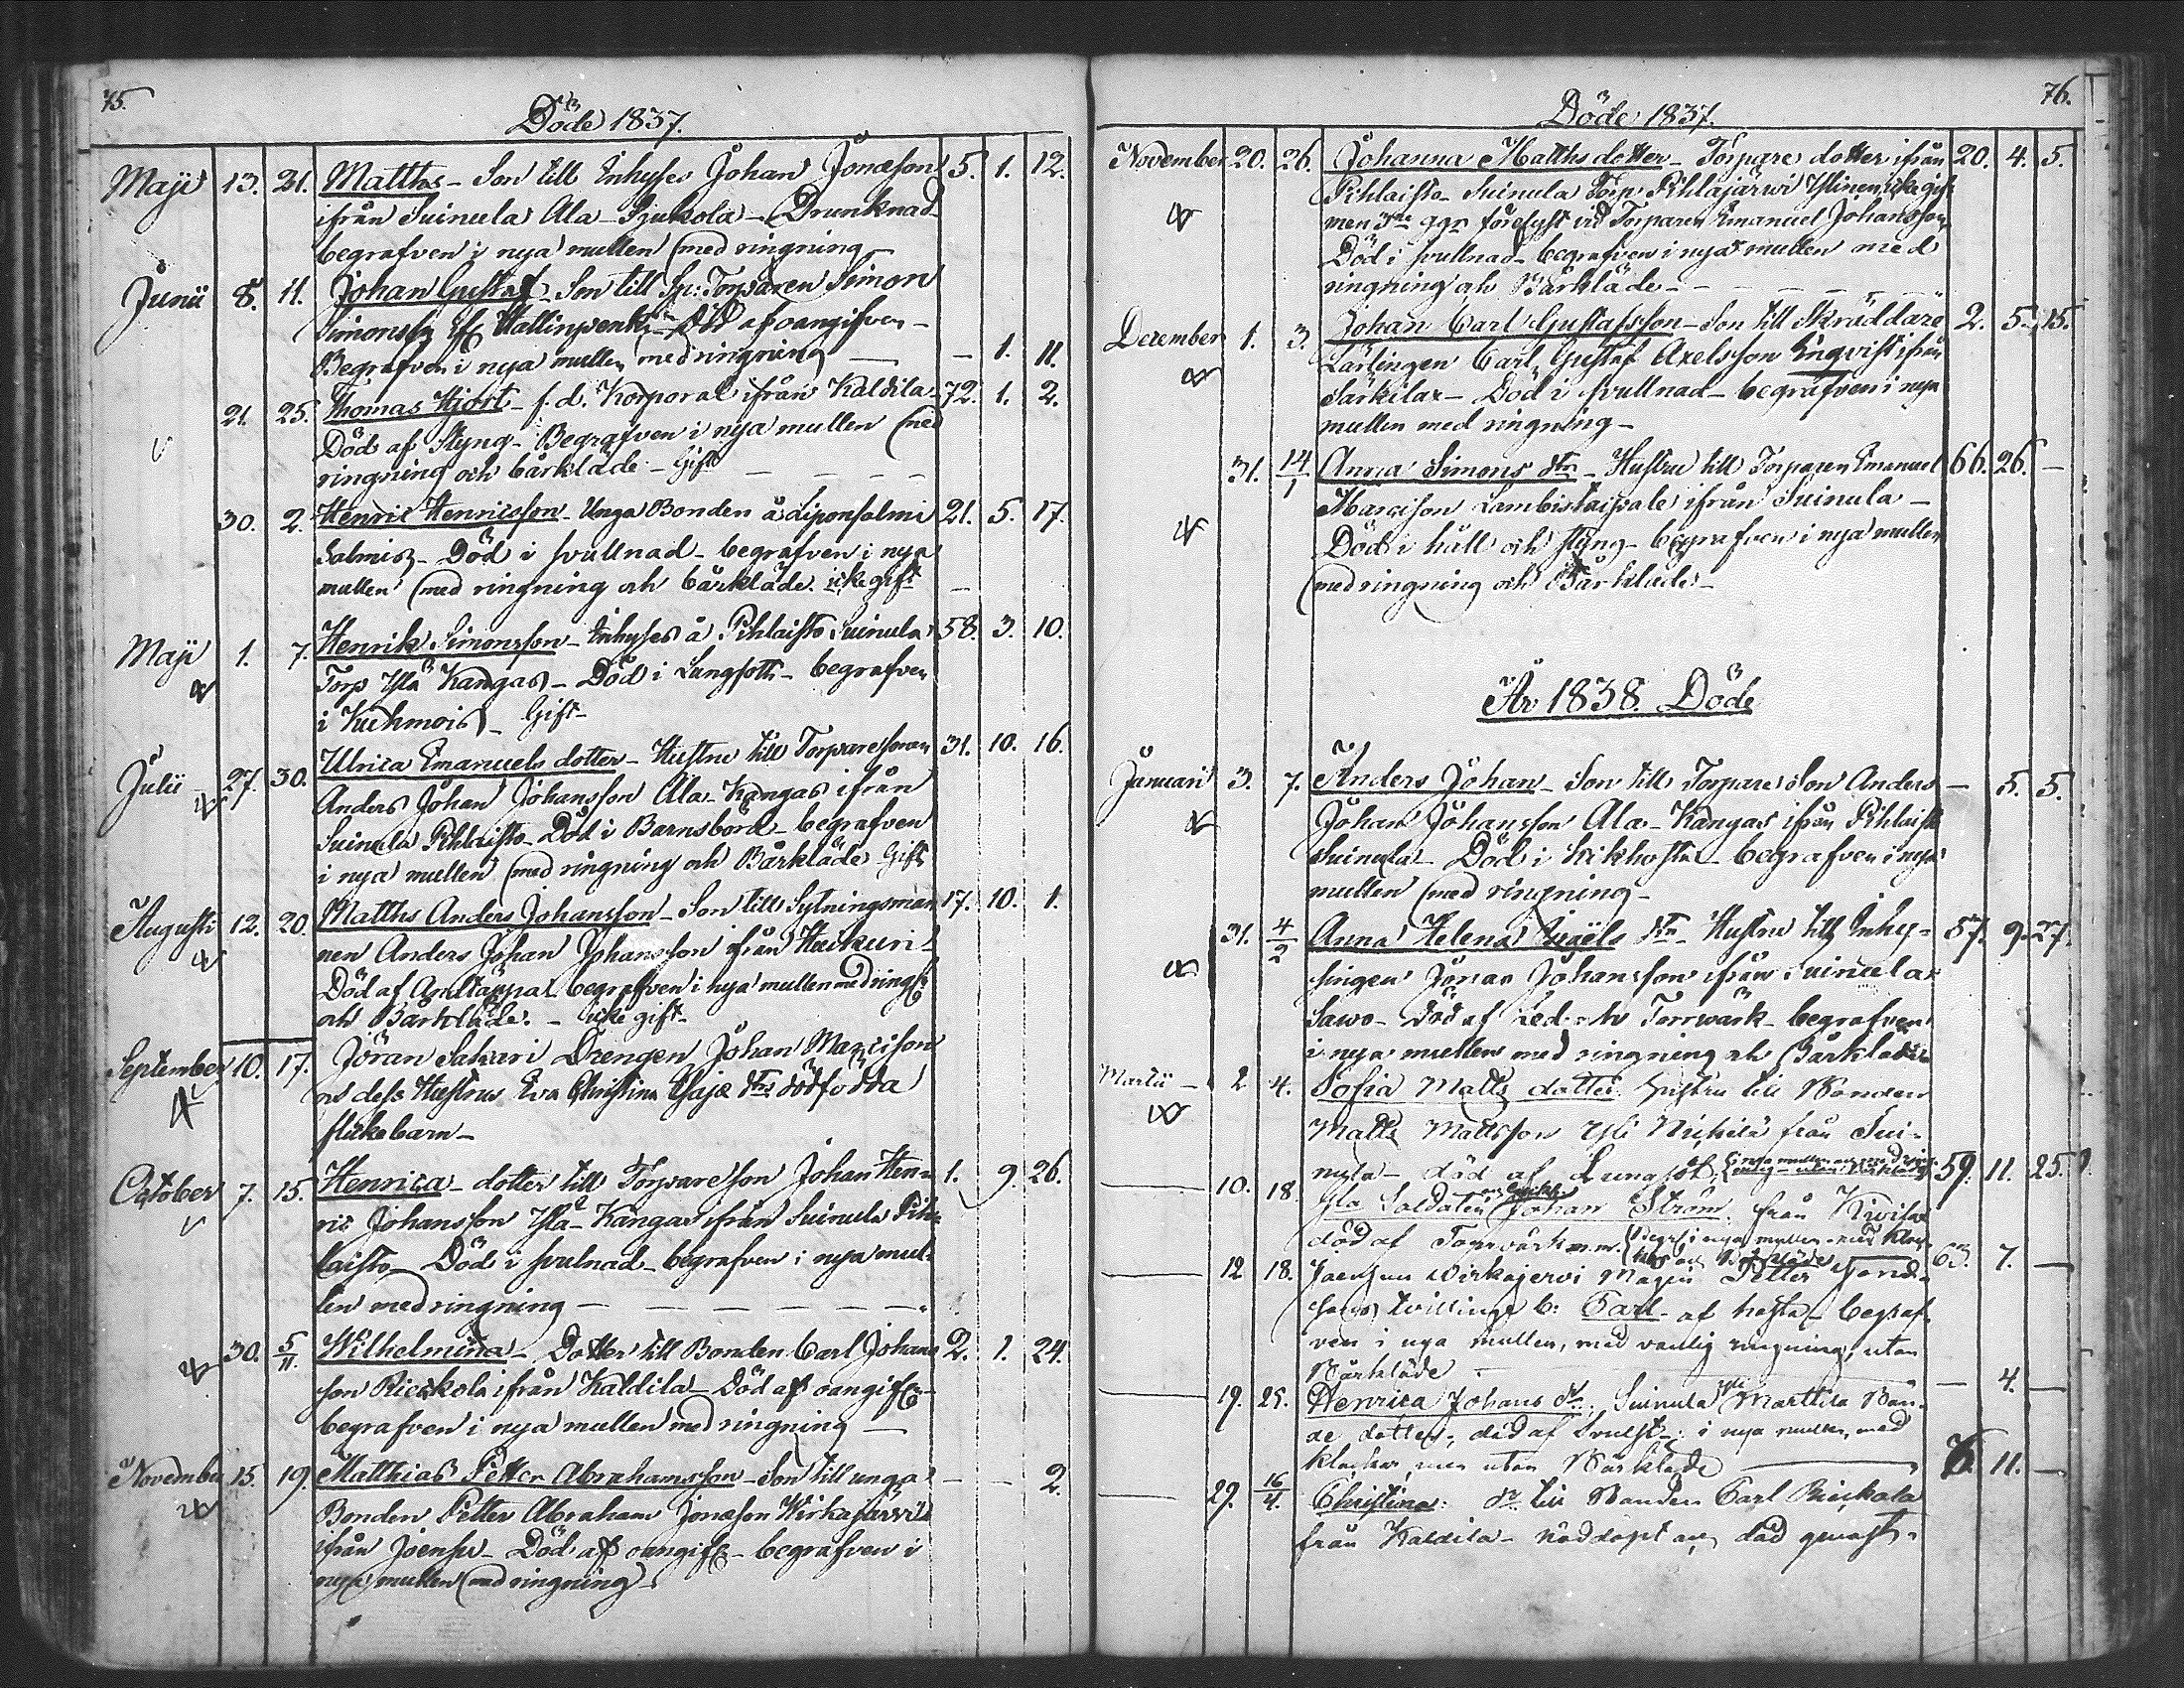 75.
Döde 1837.
Maji 13. 21. Matths - Son till Inhyses Johan Jonæson 5. 1. 12.
ifrån Suinula Ala - Drunknad
begrafven i nya mullen med ringning
Junii 8. 11. Johan Gustaf - Son till Torparen Simon
Simonson af oangifven -
Begrafven i nya mullen med ringning - - 1. 11.
21. 25. Thomas Hjort - f. d. Korporal ifrån Kaldila - 72. 1. 2.
Död af Styng - Begrafven i nya mullen med
ringning och bårkläde - Gift
30. 2. Henric Hennicsson - Unga Bonden å Liponsalmi 21. 5. 17.
Salmis - Död i svullnad - begrafven i nya
mullen med ringning och bårkläde. icke gift
Maji 1. 7. Henrik Simonsson - Inhyses å Pihlaisto Suinula 58. 3. 10.
Torp Ylä Kangas - Död i Lungsott - begrafven
i Kuhmois - Gift -
Julii 27. 30. Ulrica Emanuels dotter - Hustru till Torparesonen 31. 10. 16.
Anders Johan Johansson Ala - Kangas ifrån
Suinula Pihlaisto - Död i Barnsbörd - begrafven
i nya mullen med ringning och Bårkläde Gift
Augusti 12. 20. Matths Anders Johansson - Son till Sytningsman 17. 10. 1.
nen Anders Johan Johansson ifrån
Död af Andtäppa - begrafven i nya mullen med ring
och Bårkläde. - icke gift -
September 10. 17. Jöran Sakari Drengen Johan Marcisson
och dess Hustrus Eva Christina dödfödda
flickebarn -
October 7. 15. Henrica - dotter till Torpareson Johan Hen- 1. 9. 26.
ric Johansson Ylä - Kangas ifrån Suinula Pih-
laisto - Död i svulnad - begrafven i nya mul-
len med ringning -
30. 5/11. Wilhelmina - Dotter till Bonden Carl Johans 2. 1. 24.
son Rieckola ifrån Kaldila - Död af oangifv
begrafven i nya mullen med ringning -
November 15. 19. Matthias Petter Abrahamsson - Son till unga - - 2.
Bonden Petter Abraham Jonæson Wirkajärvi
ifrån Joensu - Död af oangifv - begrafven i
nya mullen med ringning -
76.
Döde 1837.
November 20. 26. Johanna Matthsdotter - Torpare dotter ifrån 20. 4. 5.
Pihlaisto Suinula Torp Pihlajärwi icke gift
men 3ne ggr förelyst vid Torparen Emanuel Johansson
Död i svullnad - begrafven i nya mullen med
ringning och Bårkläde -
December 1. 3. Johan Carl Gustafsson - Son till Skräddare 2. 5. 15.
Lärlingen Carl Gustaf Axelsson Enqvist ifrån
Särkilax - Död i svullnad - begrafven i nya
mullen med ringning -
31. 14/1 Anna Simons dtr - Hustru till Torparen Emanuel 66. 26. -
Marcison ifrån Suinula -
Död i håll och styng - begrafven i nya mullen
med ringning och Bårkläde -
År 1838. Döde
Januari 3. 7. Anders Johan - Son till Torpare Son Anders - 5. 5.
Johan Johansson Ala - Kangas ifrån Pihlaisto
Suinula - Död i Kikhosta - begrafven i nya
mullen med ringning -
31. 4/2 Anna Helena dtr - Hustru till Inhy- 57. 9. 27.
singen Jonas Johansson ifrån Suinula
Sawo - Död af Led och Torrwärk - begrafven
i nya mullen med ringning och Bårkläde
Martii - 2. 4. Sofia Matts dotter Hustru till Bonden
Matts Mattsson Yli från Sui-
nula - död af Lungsot, 59. 11. 25.
10. 18. Soldaten Johan Ström från
död af Torrvärk i nya mullen med
och Bårkläde 63. 7. -
12. 18. Joensuu Wirkajervi Petter
sons tvillinge b: Carl - af hosta - begraf-
ven i nya mullen, med vanlig ringning, utan
Bårkläde - 4. -
19. 25. Henrica Johans dr. Suinula Marttila Bon-
de dotter, död af Svulst - i nya mullen, med
klockor, men utan Bårkläde 11. -
29. 16/4. Christina: dr till Bonden Carl Rieckola
från Kaldila - nöddöpt och död genast -